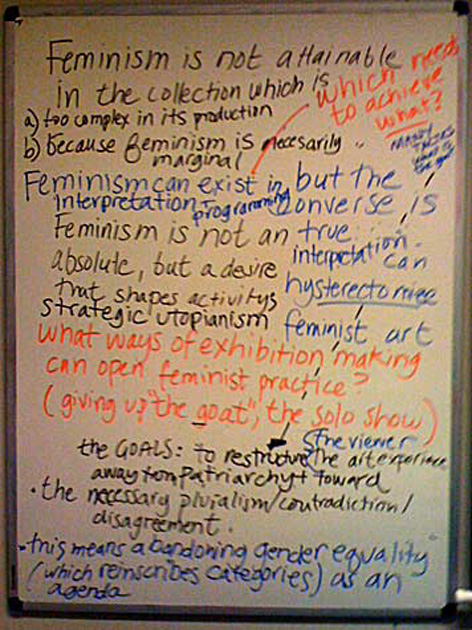 Feminism is not attainable
in the collection which is
which needs
to achieve
what?
a) too complex in its production
b) because feminism is necesarily
marginal
Feminism can exist in, but the
interpretation - programming converse is
Feminism is not an true
absolute, but a desire interpretation
that shapes activitys can
hysterectomize
strategic utopianism
feminist art
what ways of exhibition making
can open feminist practice?
(giving up "the goat", the solo show)
the viewer
the GOALS: to restructure the art experience
away from patriarchy + toward
the necessary pluralism/contradiction/
disagreement.
- this means abandoning gender equality"
(which reinscribes categories) as an
agenda